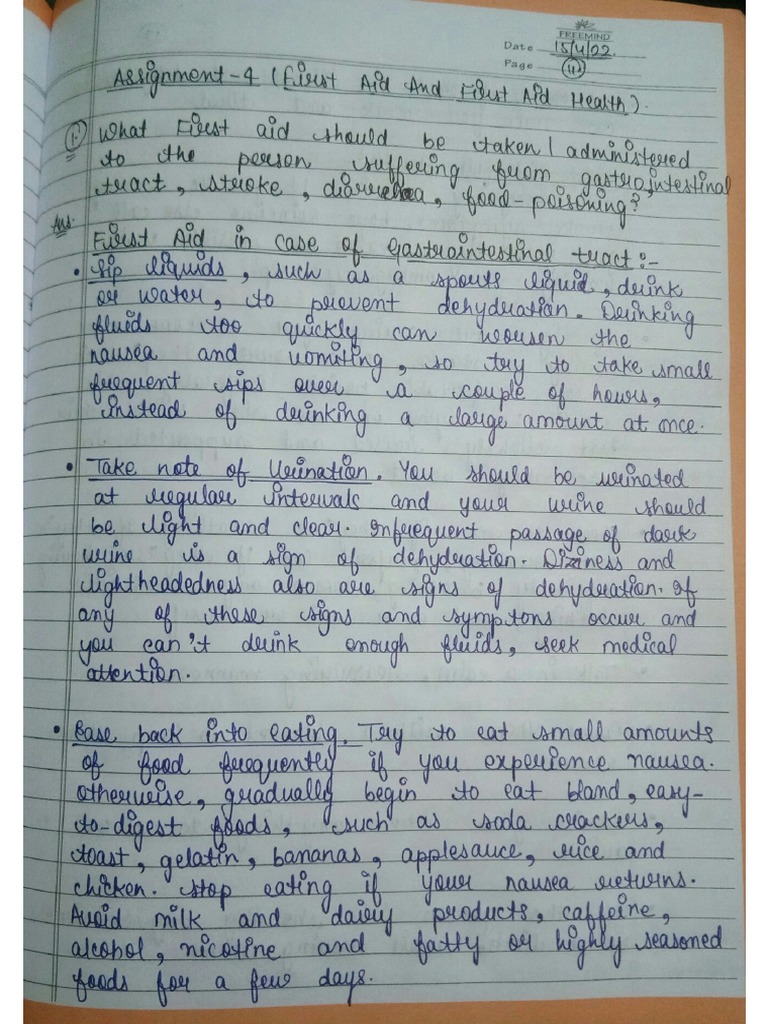 FREEMIND
Date 15/4/22.
Page 11
Assignment-4 (First Aid And First Aid Health).
1. What First aid should be taken / administered
to the person suffering from gastrointestinal
tract, stroke, diarrehea, food-poisoning?
Ans.
First Aid in case of Gastraintestinal tract:-
• Sip liquids, such as a sports liquid, drink
or water, to prevent dehydration. Drinking
fluids too quickly can worsen the
nausea and vomiting, so try to take small
frequent sips over a couple of hours,
instead of drinking a large amount at once.
• Take note of Urination. You should be urinated
at regular intervals and your urine should
be light and clear. Infrequent passage of dark
urine is a sign of dehydration. Dizziness and
lightheadedness also are signs of dehydration. If
any of these signs and symptons occur and
you can't drink enough fluids, seek medical
attention.
• Ease back into eating. Try to eat small amounts
of food frequently if you experience nausea.
Otherwise, gradually begin to eat bland, easy-
to-digest foods, such as soda crackers,
toast, gelatin, bananas, applesauce, rice and
chicken. Stop eating if your nausea returns.
Avoid milk and dairy products, caffeine,
alcohol, nicotine and fatty or highly seasoned
foods for a few days.